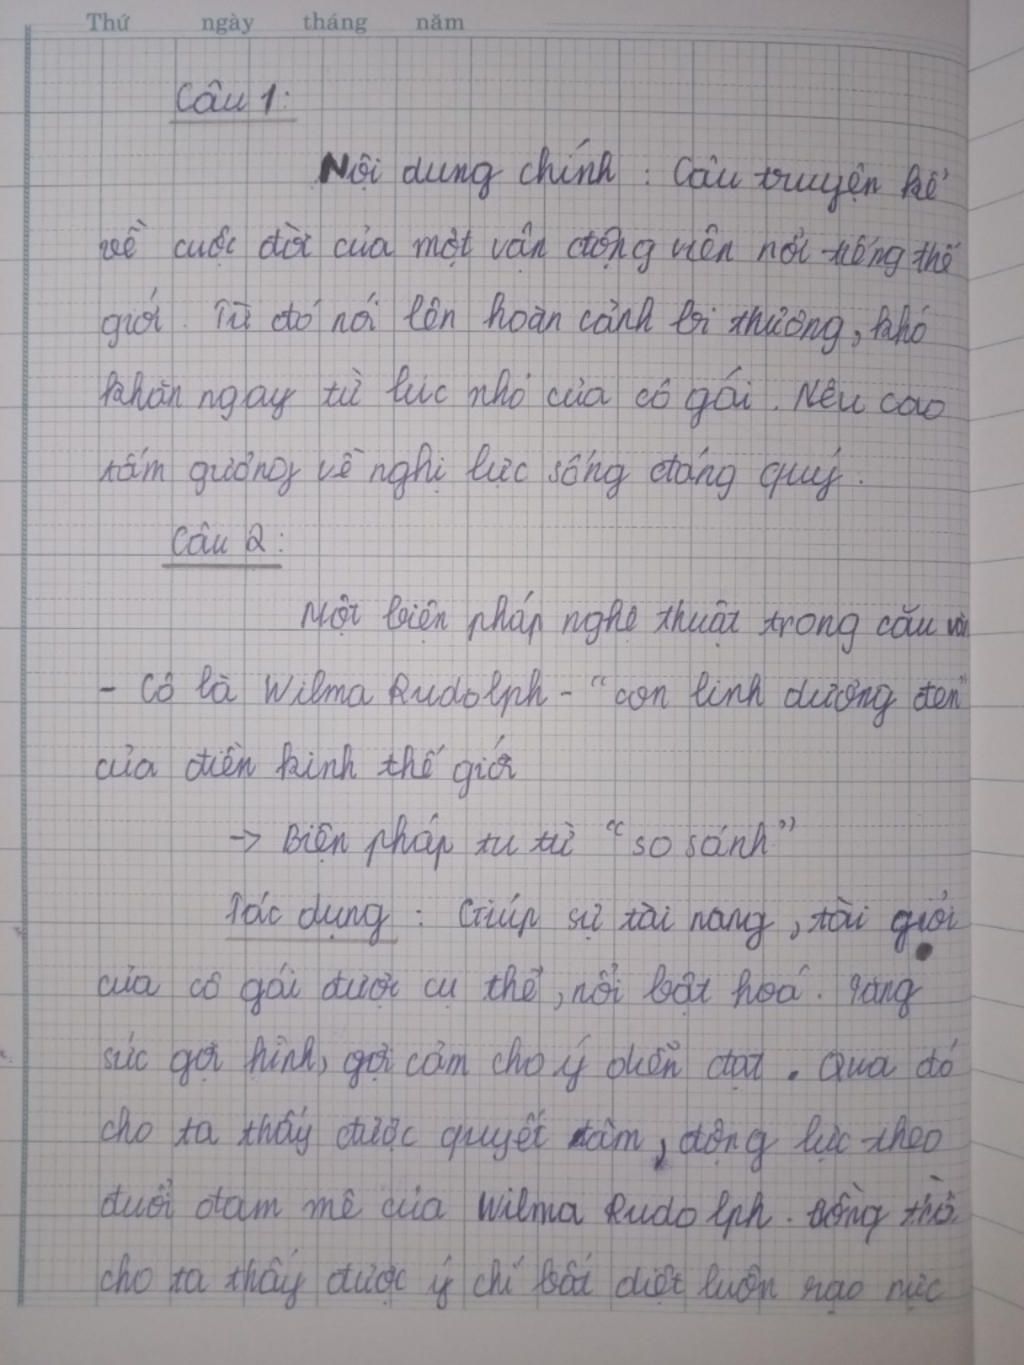 Thứ ngày tháng năm
Câu 1:
Nội dung chính : Câu truyện kể
về cuộc đời của một vận động viên nổi tiếng thế
giới. Từ đó nói lên hoàn cảnh bi thương, khó
khăn ngay từ lúc nhỏ của cô gái. Nêu cao
tấm gương về nghị lực sống đáng quý.
Câu 2:
Một biện pháp nghệ thuật trong câu văn
- Cô là Wilma Rudolph - "con linh dương đen"
của điền kinh thế giới
-> Biện pháp tu từ "so sánh"
Tác dụng : Giúp sự tài nang, tài giỏi
của cô gái được cụ thể, nổi bật hoá. Tăng
sức gợi hình, gợi cảm cho ý diễn đạt. Qua đó
cho ta thấy được quyết tâm, động lực theo
đuổi đam mê của Wilma Rudolph. Đồng thời
cho ta thấy được ý chí bất diệt luôn rạo rực